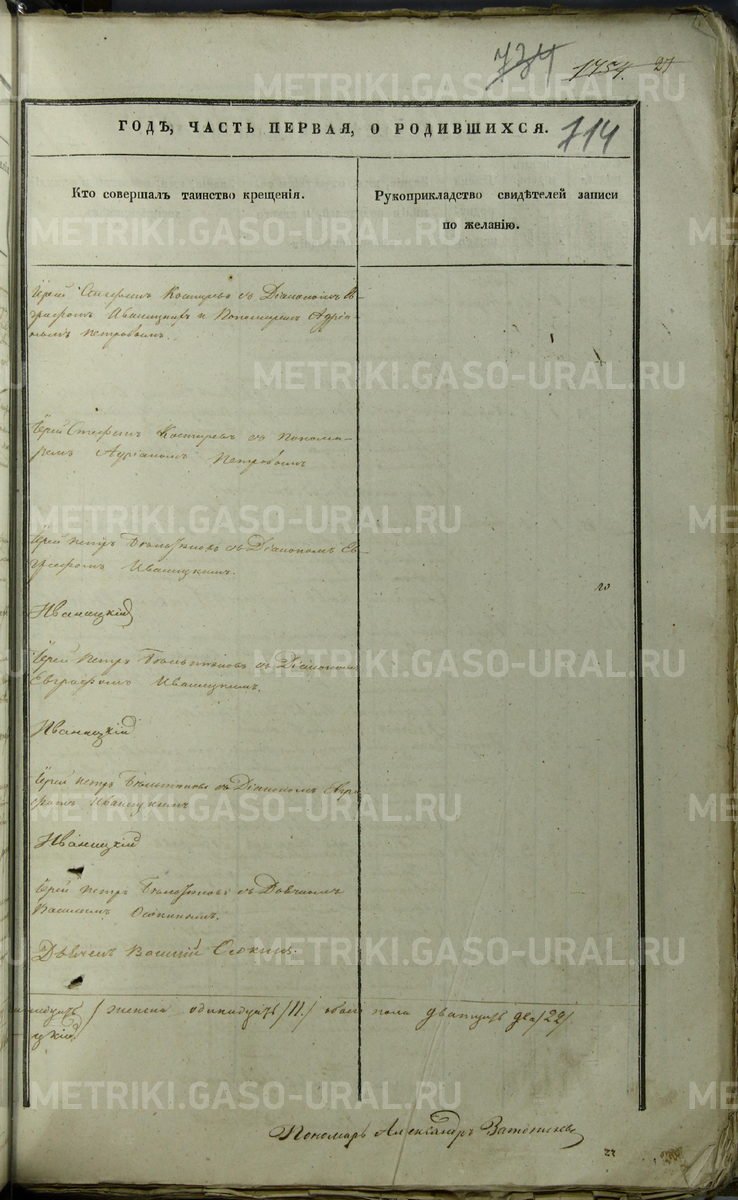 734 1754. 27
ГОДЪ, ЧАСТЬ ПЕРВАЯ, О РОДИВШИХСЯ. 714
Кто совершалъ таинство крещенія.
Рукоприкладство свидѣтелей записи
по желанію.
Іерей Стефанъ Костыревъ съ Діакономъ Ев-
графомъ Иваницкимъ и Пономаремъ Адріа-
номъ Петровымъ.
Іерей Стефанъ Костыревъ съ Понома-
ремъ Адріаномъ Петровымъ
Іерей Петръ съ Діакономъ Ев-
графомъ Иваницкимъ.
Иваницкій
Іерей Петръ съ Діакономъ
Евграфомъ Иваницкимъ.
Иваницкій
Іерей Петръ съ Діакономъ Евгра-
фомъ Иваницкимъ
Иваницкій
Іерей Петръ съ Дьячкомъ
Василіемъ Осокинымъ.
Дьячекъ Василій Осокинъ.
женска одинадцать /11./ обоего пола двадцать два /22/
цкій
Пономарь Александръ
METRIKI.GASO-URAL.RU